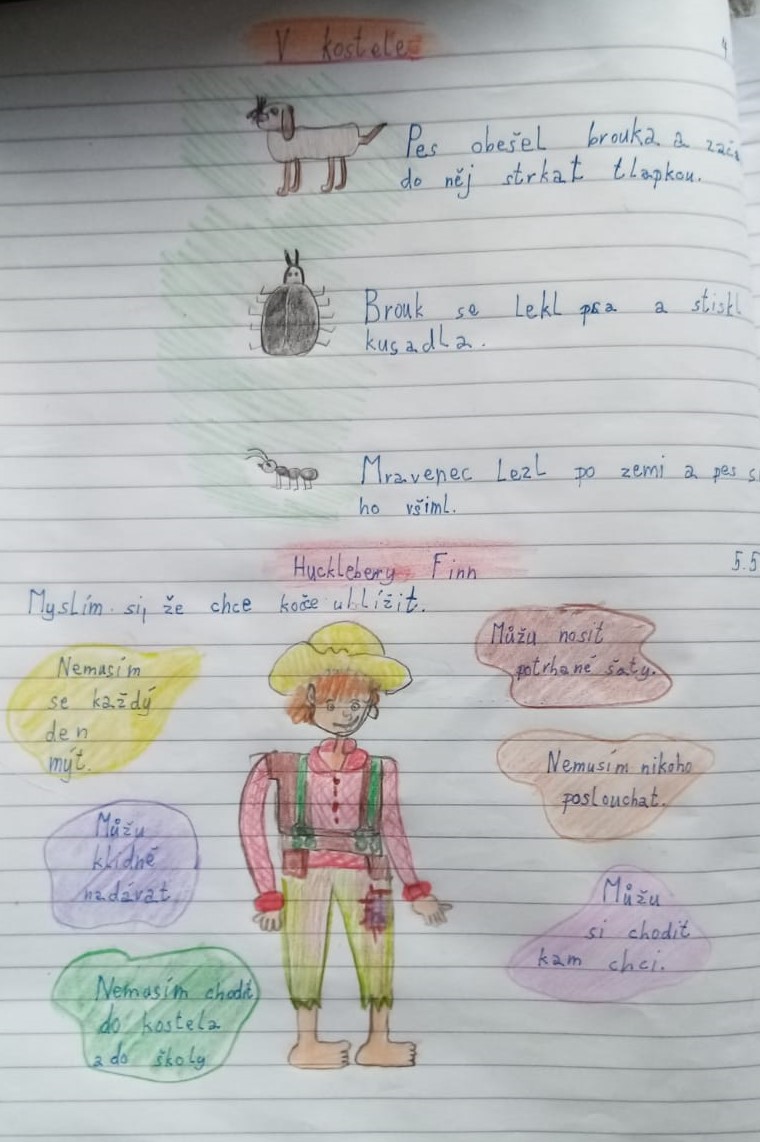 V kostele
Pes obešel brouka a zača
do něj strkat tlapkou.
Brouk se lekl psa a stiskl
kusadla.
Mravenec lezl po zemi a pes s
ho všiml.
Huckleberry Finn
5.5
Myslím si, že chce kočce ublížit.
Nemusím
se každý
den
mýt.
Můžu
klidně
nadávat
Nemusím chodit
do kostela
a do školy
Můžu nosit
potrhané šaty.
Nemusím nikoho
poslouchat.
Můžu
si chodit
kam chci.